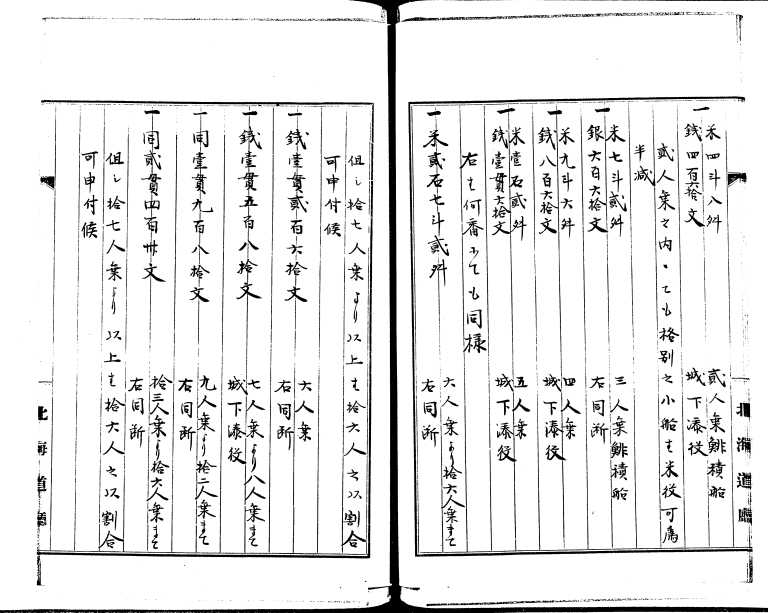 一 米四斗八舛 弐人乗鯡積船
銭四百六拾文 城下漆役
弐人乗之内ニても格別之小船は米役可為
半減
米七斗弐舛 三人乗鯡積船
一 銀六百六拾文 右同断
米九斗六舛 四人乗
一 銭八百六拾文 城下漆役
米壹石弐舛 五人乗
一 銭壹貫六拾文 城下漆役
右は何番ニても同様
一 米弐石七斗弐舛 六人乗より拾六人乗まて
右同断
北海道廳
但シ拾七人乗より以上は拾六人之以割合
可申付候
一 銭壹貫弐百六拾文 六人乗
右同断
一 銭壹貫五百八拾文 七人乗より八人乗まて
城下漆役
一 同壹貫九百八拾文 九人乗より拾二人乗まて
右同断
一 同弐貫四百卅文 拾三人乗より拾六人乗まて
右同断
但シ拾七人乗より以上は拾六人之以割合
可申付候
北海道廳